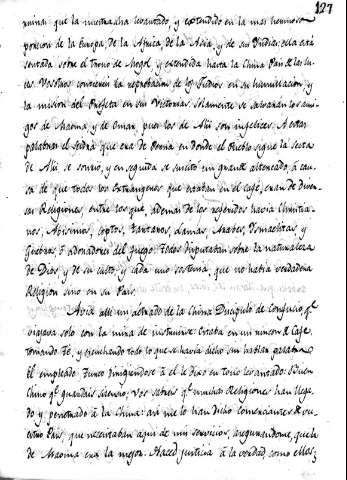 127
minar que la nuestra. Ha levantado, y extendido en la mas hermosa
porcion de la Europa, de la Africa, de la Asia, y de sus Yndias: ella está
sentada sobre el Trono de Mogol, y extendida hasta la China Pais de las lu-
ces. Vosotros conveneis la reprobacion de los Judios en su humillacion, y
la mision del Profeta en sus Victorias. Solamente se salvarán los ami-
gos de Maoma, y de Omar, pues los de Alii son infelices. A estas
palabras el Seidra que era de Persia en donde el Pueblo sigue la Secta
de Alii se sonrio, y en seguida se suscitó un grande altercado à cau-
sa de que todos los Extrangeros que estaban en el café, eran de diver-
sas Religiones, entre los que, ademas de los referidos havia Christia-
nos, Abisinios, coptos, tartaros, Lamas, Arabes, Ysmaelitas, y
Guebros ò adoradores del fuego. Todos disputaban sobre la naturaleza
de Dios, y de su culto, y cada uno sostenia, que no habia verdadera
Religion sino en su Pais.
Avia alli un letrado de la China Discipulo de Confucio, q.e
viajava solo con la mira de instruirse. Estaba en un rincon del Cafe,
tomando Té, y escuchando todo lo que se havia dicho sin hablar palabra.
El empleado Turco dirigiendose à el le dixo en tono levantado: Buen
Chino q.e guardais silencio, Vos sabeis q.e muchas Religiones han llega-
do y penetrado à la China: asi me lo han dicho comerciantes de vu-
estro Pais, que necesitaban aqui de mis servicios, asegurandome, que la
de Maoma era la mejor. Haced justicia à la verdad, como ellos;